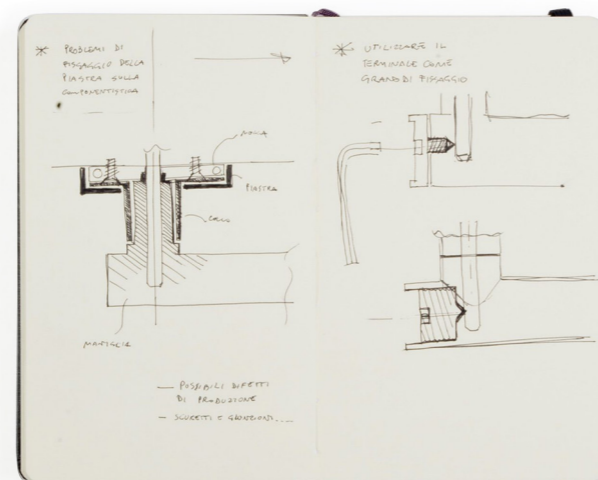 * PROBLEMI DI
FISSAGGIO DELLA
PIASTRA SULLA
COMPONENTISTICA
MOLLA
PIASTRA
MANIGLIA
— POSSIBILI DIFETTI
DI PRODUZIONE
— SCURETTI E GIUNZIONI....
* UTILIZZARE IL
TERMINALE COME
GRANO DI FISSAGGIO